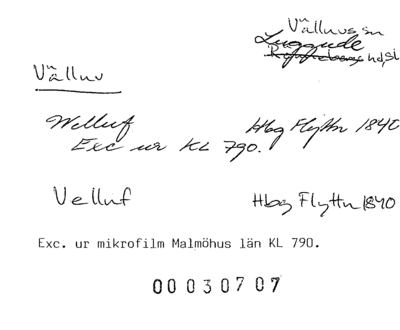 Välluvs sn
Luggude
hd, sl
Välluv
Welluf Hbg Flyttn 1840
Exc ur KL 790.
Velluf Hbg Flyttn 1840
Exc. ur mikrofilm Malmöhus län KL 790.
00030707